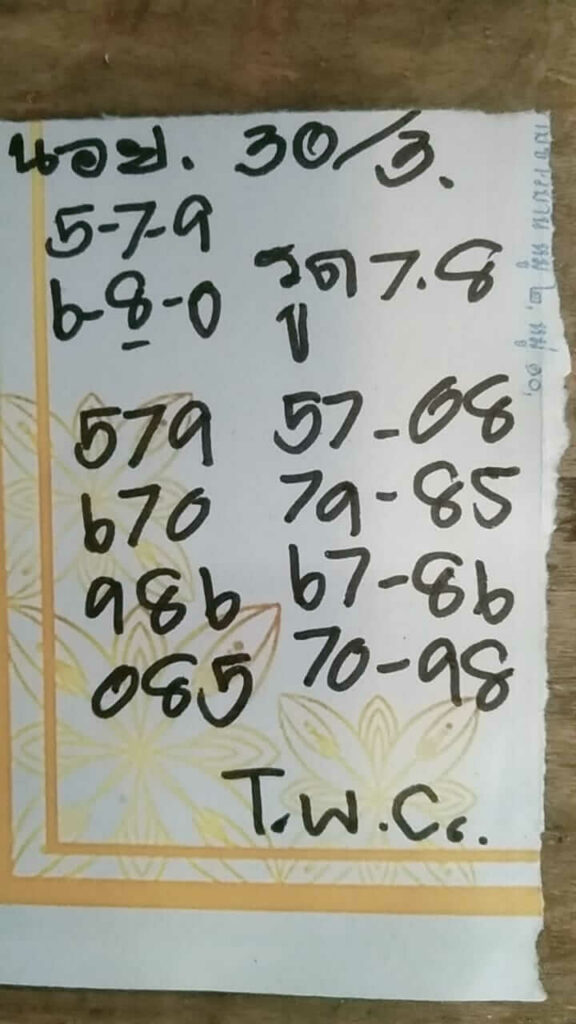 นอย. 30/3.
5-7-9
6-8-0
รูด 7.8
579
670
986
085
57-08
79-85
67-86
70-98
T.W.C.